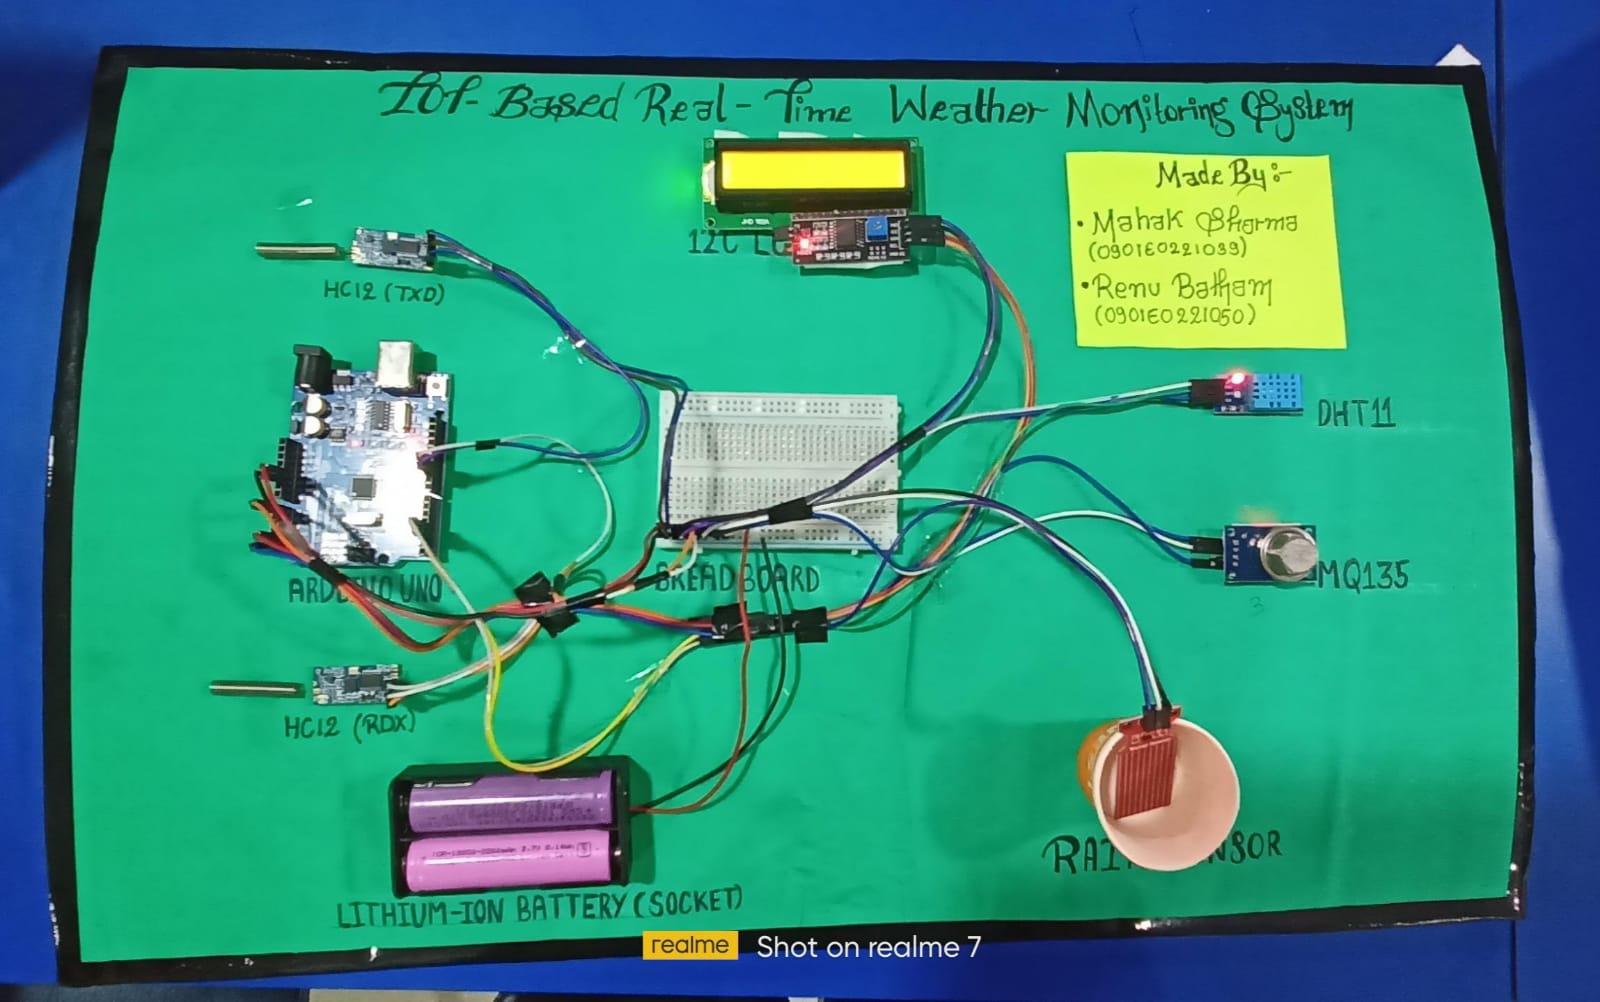 IOT-Based Real-Time Weather Monitoring System
Made By:-
• Mahak Sharma
(0901EO221039)
• Renu Batham
(0901EO221050)
JHD 162A
I2C
HC12 (TXD)
DHT11
ARDUINO UNO
BREAD BOARD
MQ135
3
HC12 (RDX)
RAIN SENSOR
LITHIUM-ION BATTERY (SOCKET)
realme Shot on realme 7